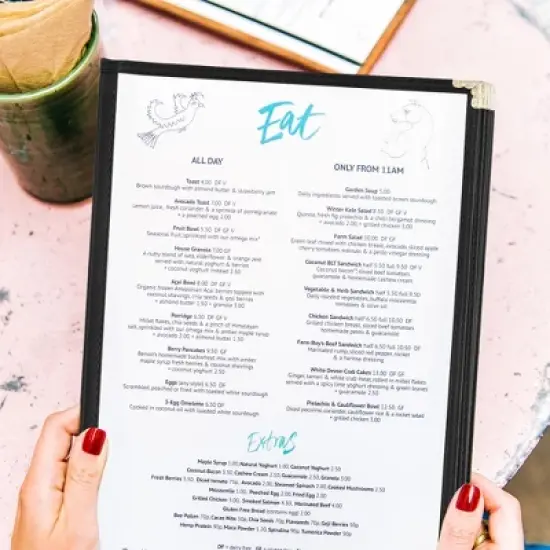 Eat
ALL DAY
Toast 4.00 DF V
Brown sourdough with almond butter & strawberry jam
Avocado Toast 7.00 DF V
Lemon juice, fresh coriander & a sprinkle of pomegranate
+ a poached egg 2.00
Fruit Bowl 5.50 DF V
Seasonal fruit, sprinkled with our omega mix
House Granola 7.00 GF
A nutty blend of oats, elderflower & orange zest
served with natural yoghurt & berries
+ coconut yoghurt 2.50
Açai Bowl 8.00 DF V
Organic frozen Amazonian Açai berries topped with
coconut shavings, chia seeds & goji berries
+ almond butter 1.50 + granola 3.00
Porridge 6.50 DF V
Millet flakes, chia seeds & a pinch of Himalayan
salt, sprinkled with our omega mix & amber maple syrup
+ avocado 2.00 + almond butter 1.50
Berry Pancakes 9.50 GF
homemade buckwheat mix with amber
maple syrup fresh berries & coconut shavings
+ coconut yoghurt 2.50
Eggs (any style) 6.50 DF
Scrambled, poached or fried with toasted white sourdough
3-Egg Omelette 6.50 DF
Cooked in coconut oil with toasted white sourdough
ONLY FROM 11AM
Garden Soup 5.00
Daily ingredients served with toasted brown sourdough
Winter Kale Salad DF GF V
Quinoa, fresh fig pistachio & a chilli bergamot dressing
+ avocado 2.00 + grilled chicken 3.00
Farm Salad 10.00 DF GF
Green leaf tossed with chicken breast, avocado, sliced apple
cherry tomatoes, walnuts & a pesto vinegar dressing
Coconut BLT Sandwich half 5.50 full 9.50 DF V
Coconut bacon, sliced beef tomatoes,
guacamole & homemade cashew cream
Vegetable & Herb Sandwich half 5.50 full 9.50
Daily roasted vegetables, buffalo mozzarella
tomatoes & olive oil
Chicken Sandwich half 6.50 full 10.50
Grilled chicken breast, sliced beef tomatoes
homemade pesto & guacamole
Beef Sandwich half 6.50 full 10.50
Marinated rump, sliced red pepper, rocket
& a harissa dressing
White Devon Crab Cakes 13.00 DF GF
Ginger, lemon & white crab meat, rolled in millet flakes
served with a spicy lime yoghurt dressing & green leaves
+ guacamole 2.50
Pistachio & Cauliflower Bowl 12.50 GF
Diced pecorino, coriander, cauliflower rice & a rocket salad
+ grilled chicken 3.00
Extras
Maple Syrup 1.00, Natural Yoghurt 1.00, Coconut Yoghurt 2.50
Coconut Bacon 3.50, Cashew Cream 2.50, Guacamole 2.50, Granola 3.00
Fresh Berries 3.50, Diced tomato 75p, Avocado 2.00, Steamed Spinach 2.00, Crushed Mushrooms 2.50
Mozzarella 1.00, Poached Egg 2.00, Fried Egg 2.00
Grilled Chicken 3.00, Smoked Salmon 4.50, Marinated Beef 4.00
Gluten Free Bread (contains egg) 2.00
Bee Pollen 70p, Cacao Nibs 50p, Chia Seeds 70p, Flaxseeds 70p, Goji Berries 50p
Hemp Protein 90p, Maca Powder 1.20, Spirulina 90p, Turmeric Powder 50p